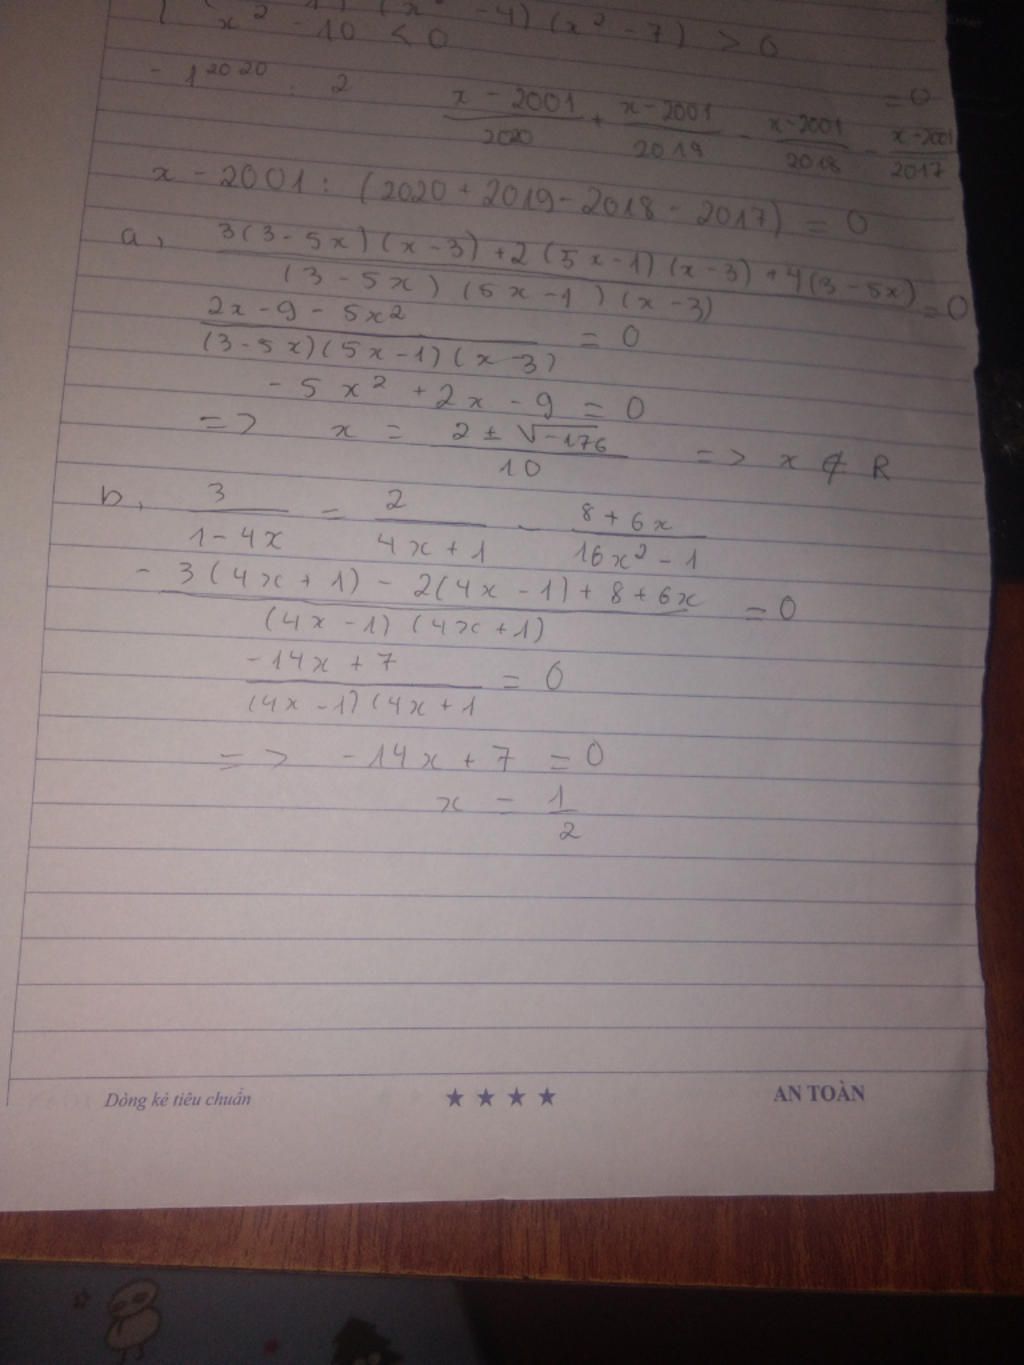 x² - 10 < 0
- 1²⁰²⁰ : 2
(x - 2001)/2020 + (x - 2001)/2019 - (x - 2001)/2018 - (x - 2001)/2017 = 0
x - 2001 : (2020 + 2019 - 2018 - 2017) = 0
a, (3(3 - 5x)(x - 3) + 2(5x - 1)(x - 3) + 4(3 - 5x))/((3 - 5x)(5x - 1)(x - 3)) = 0
(2x - 9 - 5x²)/((3 - 5x)(5x - 1)(x - 3)) = 0
- 5x² + 2x - 9 = 0
=> x = (2 ± √-176)/10 => x ∉ R
b, 3/(1 - 4x) = 2/(4x + 1) - (8 + 6x)/(16x² - 1)
(- 3(4x + 1) - 2(4x - 1) + 8 + 6x)/((4x - 1)(4x + 1)) = 0
(-14x + 7)/((4x - 1)(4x + 1 = 0
=> -14x + 7 = 0
x = 1/2
Dòng kẻ tiêu chuẩn ★ ★ ★ ★ AN TOÀN